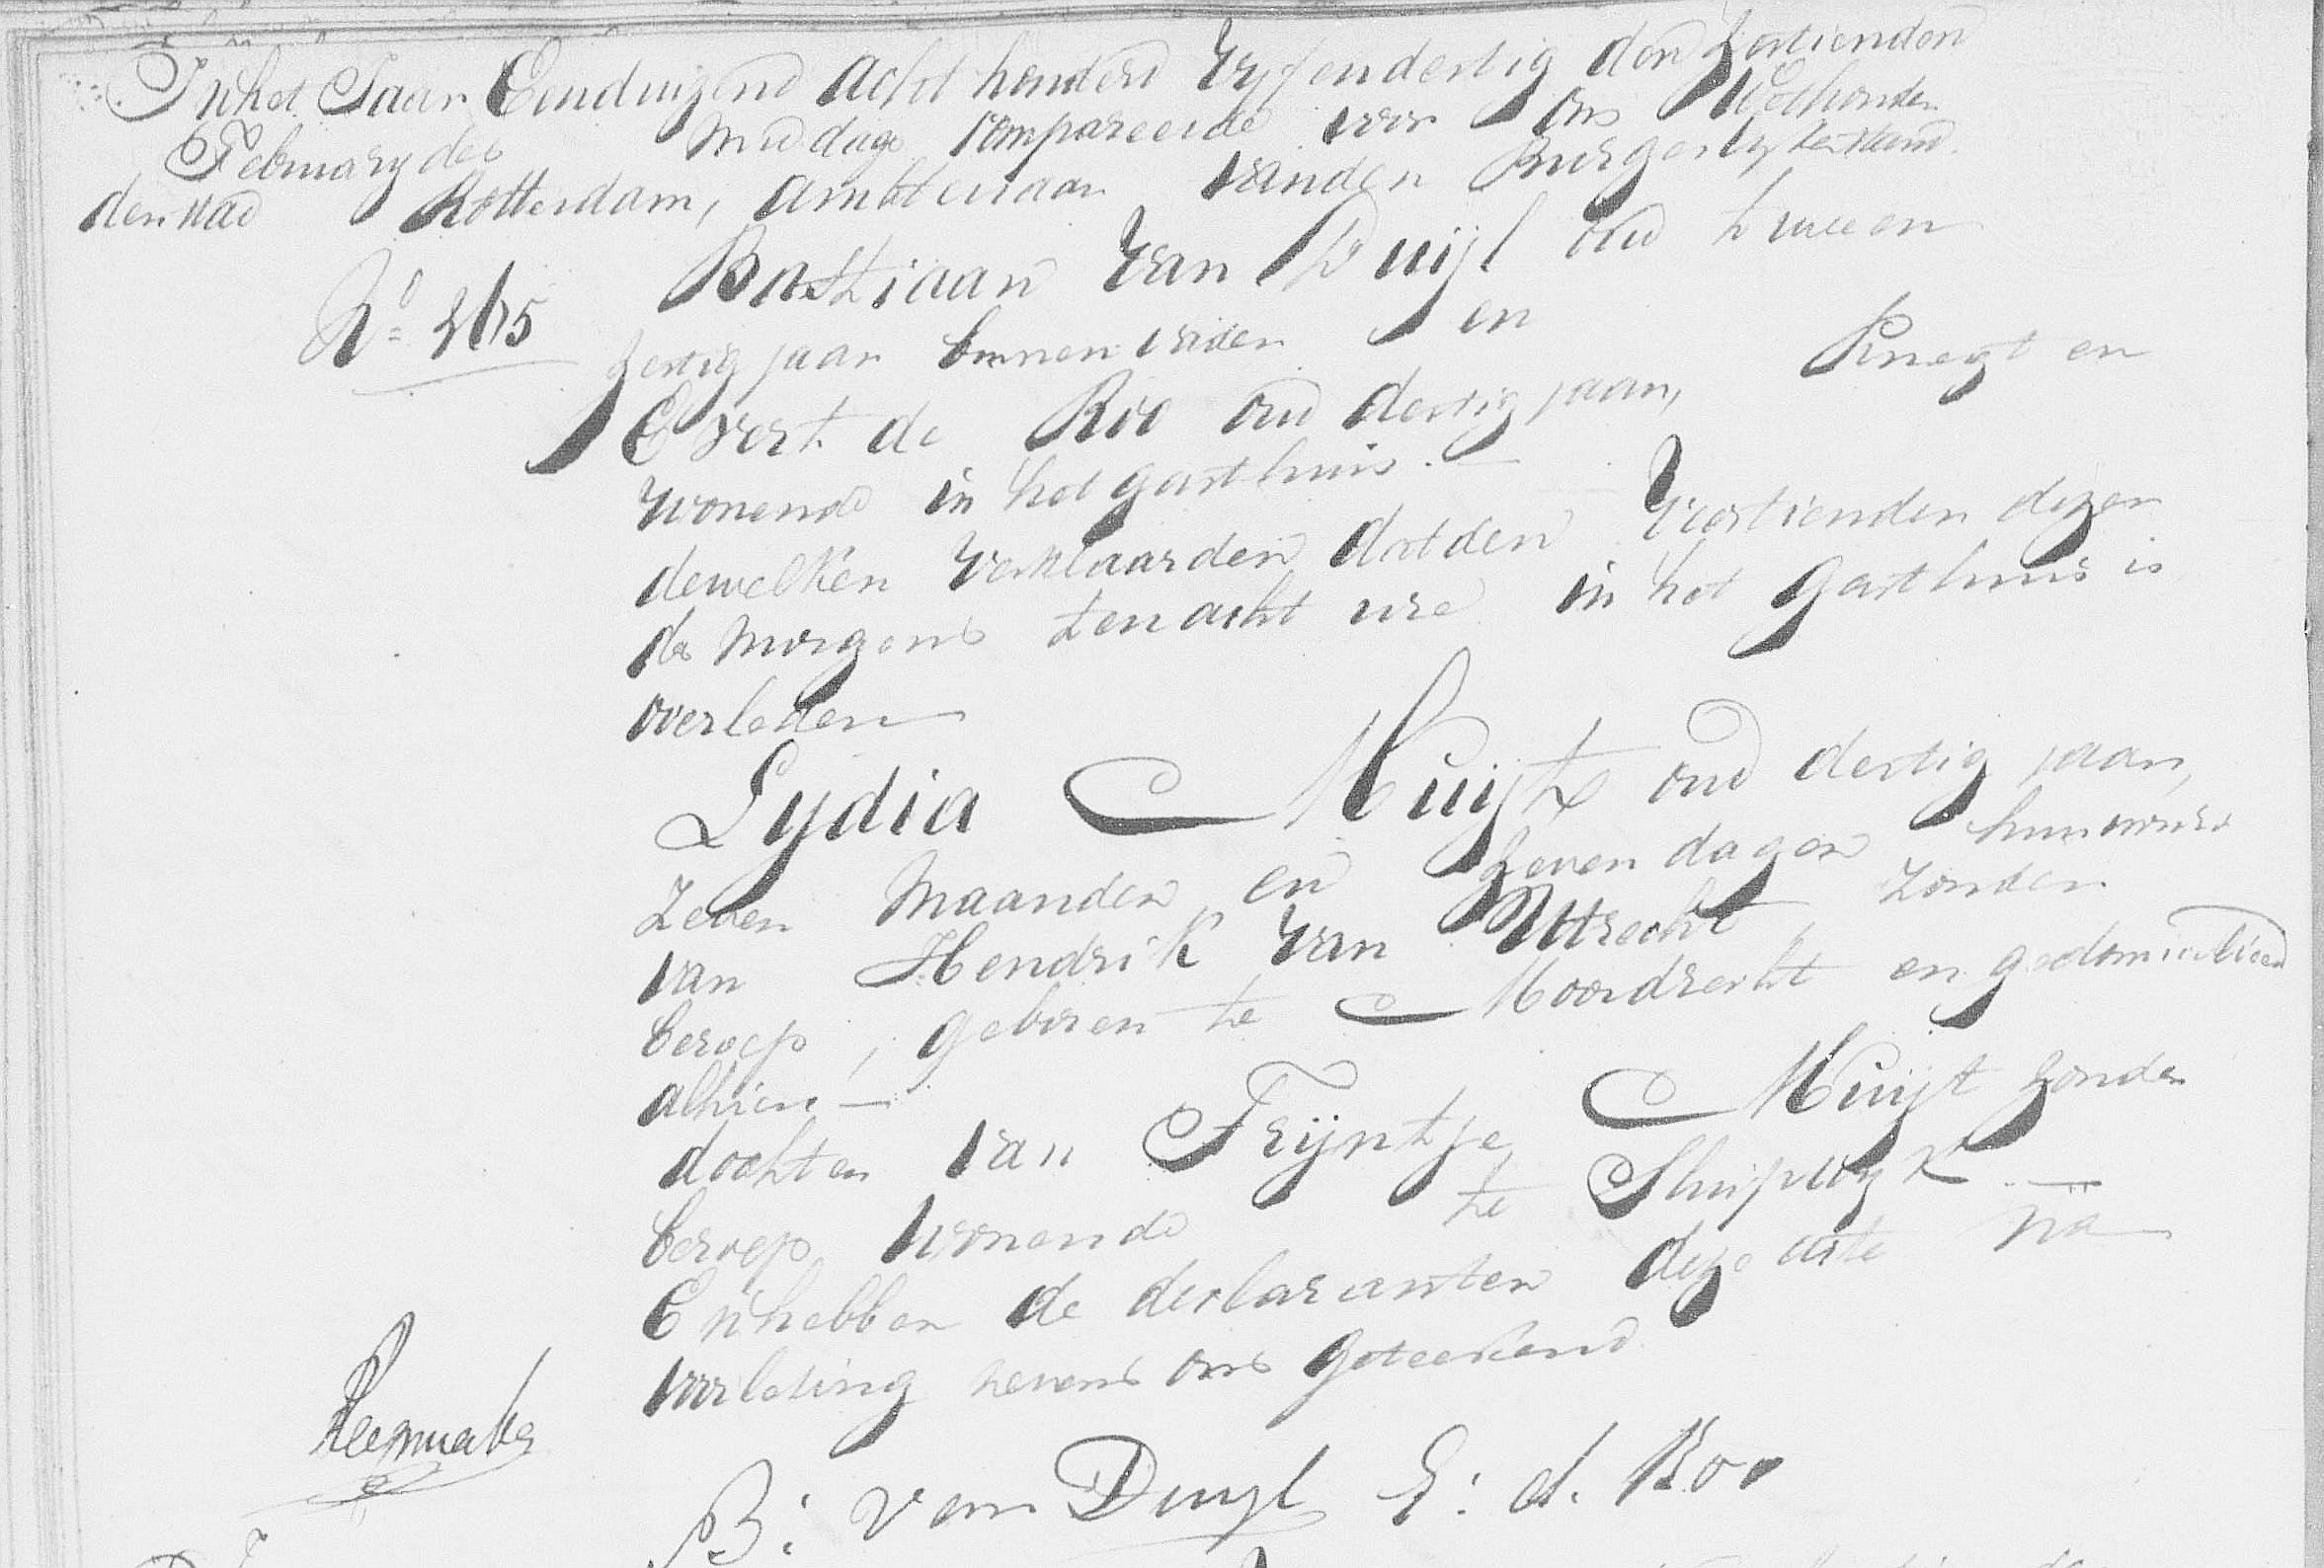 In het Jaar Eenduizend Acht honderd Vyf en dertig den Zestienden
February des Middags Compareerde voor Ons Wethouder
der stad Rotterdam, Ambtenaar van den Burgerlyken stand
Bastiaan van Duijl oud twee en
No 365
zestig jaar binnenvader en
Evert de Roo oud dertig jaar, Knegt en
wonende in het gasthuis.—
dewelken verklaarden dat den Veertienden dezer
des morgens ten acht ure in het gasthuis is
overleden
Lydia Muijt oud dertig jaar,
zeven Maanden en zeven dagen huisvrouw
van Hendrik van Uttrecht, zonder
beroep, geboren te Moordrecht en gedomicilieerd
alhier —
dochter van Trijntje Muijt zonder
beroep wonende te Sluipwyk —
En hebben de declaranten deze acte na
voorlezing nevens ons geteekend
B: van Duyl E: d. Roo